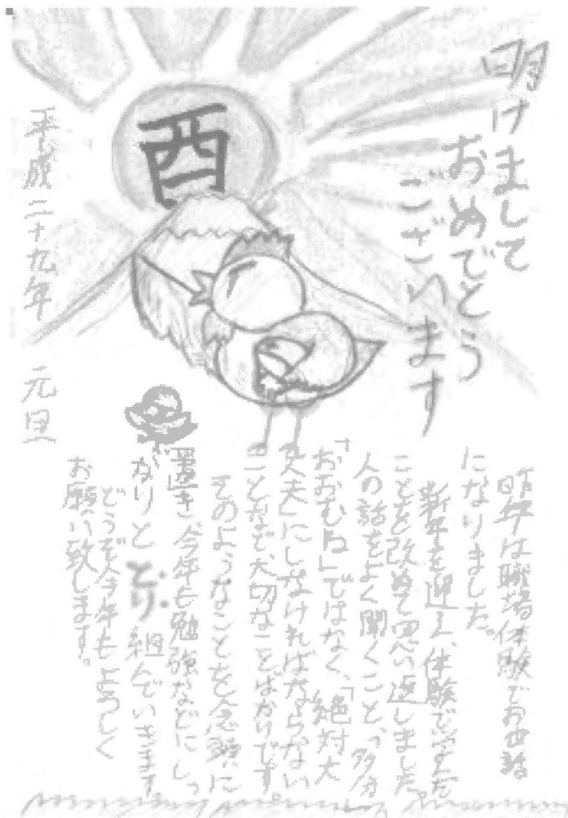 明けまして
おめでとう
ございます
酉
平成二十九年 元旦
昨年は職場体験でお世話
になりました。
新年を迎え、体験で学んだ
ことを改めて思い返しました。
人の話をよく聞くこと、「多分
「おおむね」ではなく、「絶対大
丈夫」にしなければならない
ことなど、大切なことばかりです。
そのようなことを念頭に
置き、今年も勉強などにしっ
かりととり組んでいきます。
どうぞ今年もよろしく
お願い致します。